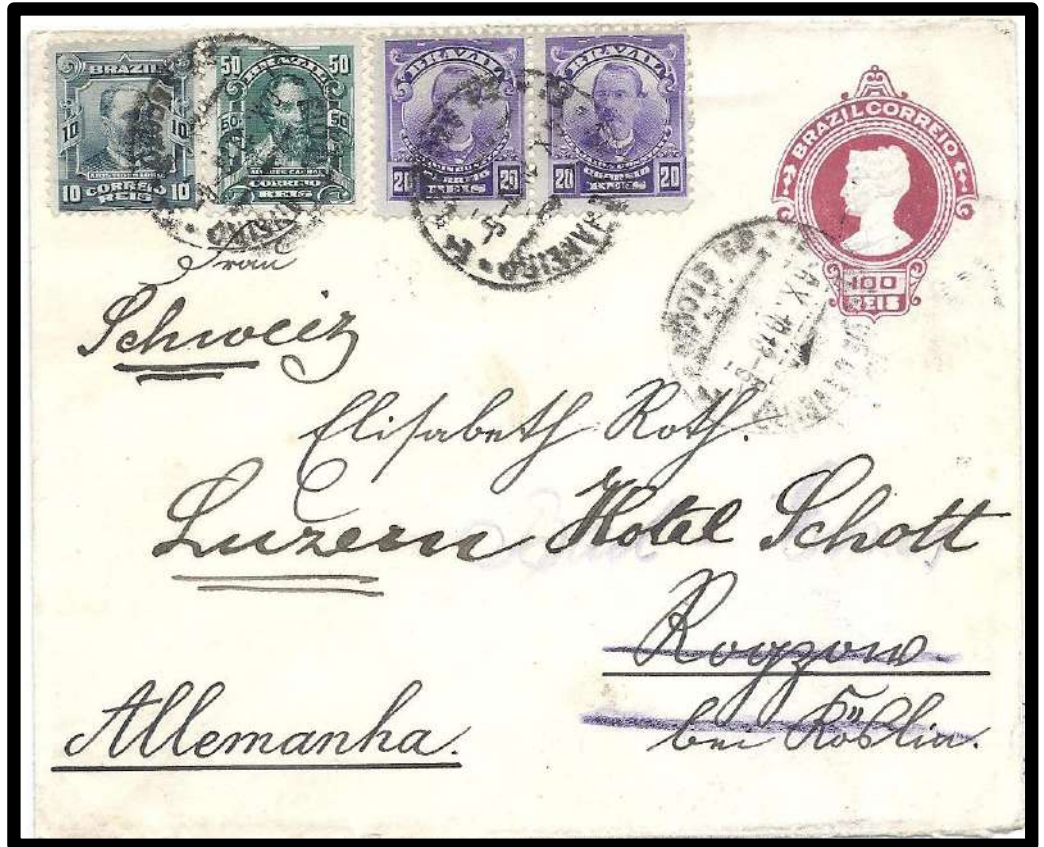 BRAZIL
10 10
10 CORREIO 10
REIS
50 BRAZIL 50
50 50
CORREIO
REIS
BRAZIL
20 CORREIO 20
REIS
BRAZIL
20 CORREIO 20
REIS
BRAZIL CORREIO
100
REIS
JANEIRO
Frau
Schweiz
Elisabeth Roth.
Luzern Hotel Schott
Rogzow
bei Köslin.
Allemanha.